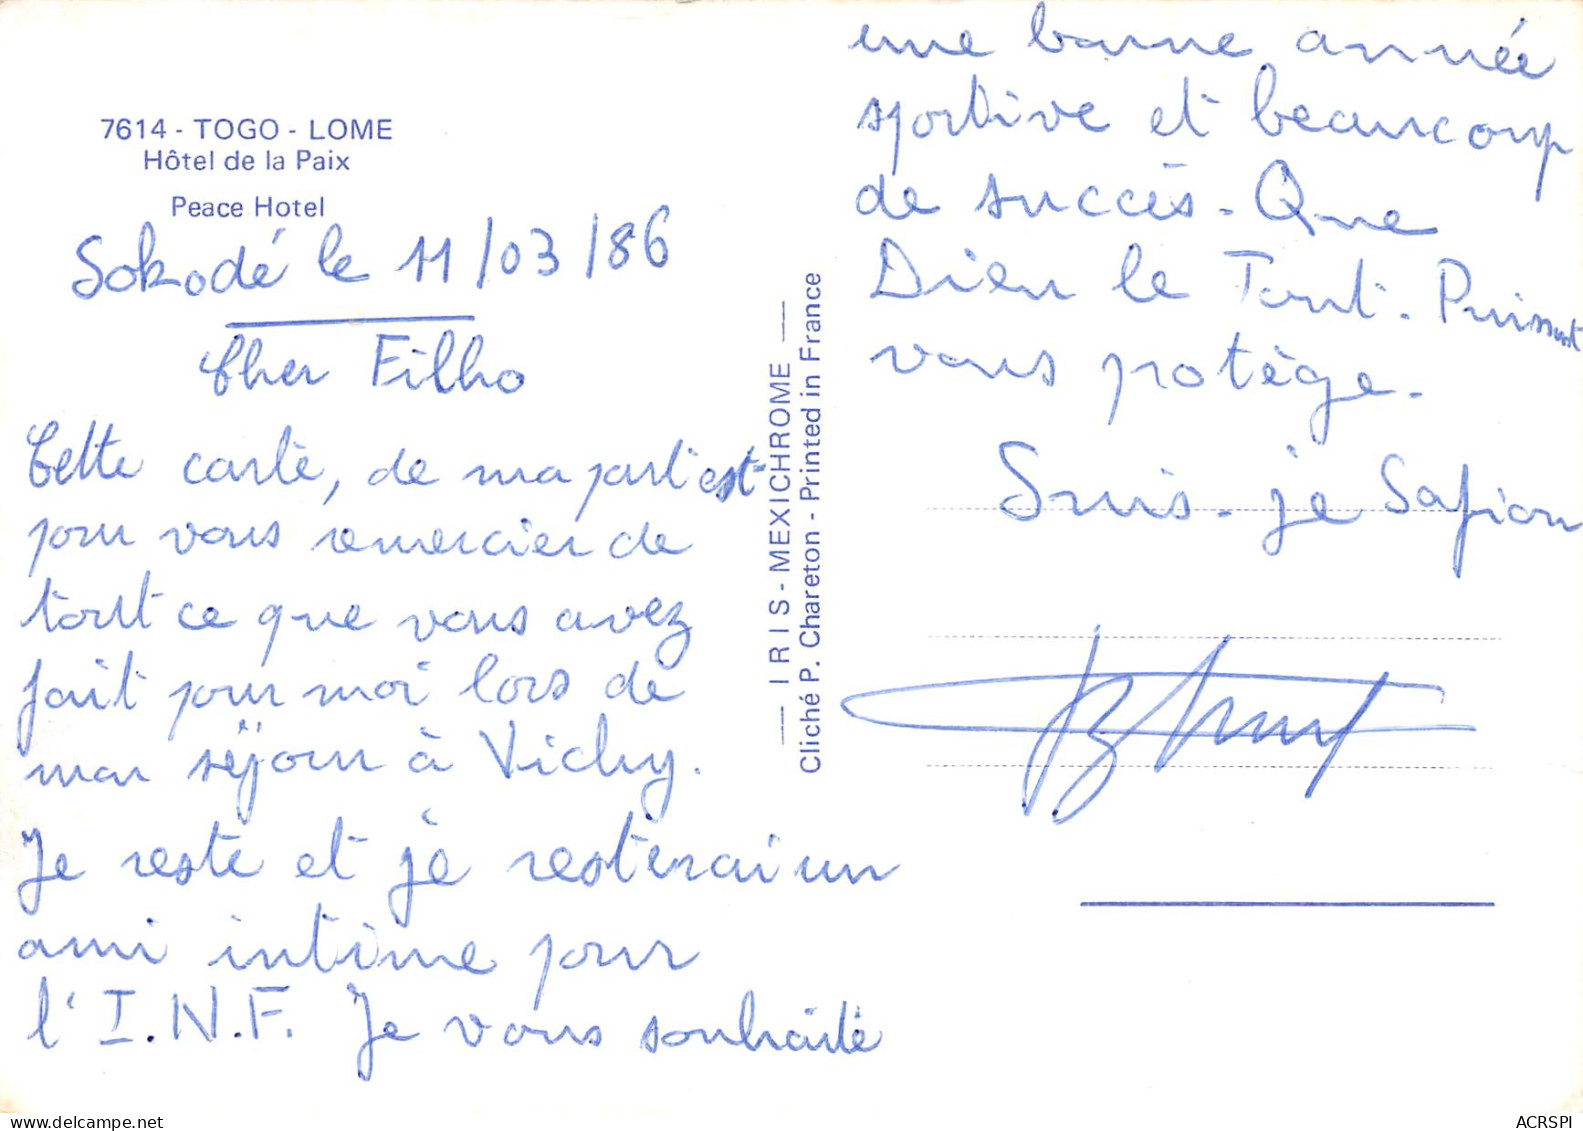 7614 - TOGO - LOME
Hôtel de la Paix
Peace Hotel
Sokodé le 11/03/86
Cher Filho
Cette carte, de ma part est
pour vous remercier de
tout ce que vous avez
fait pour moi lors de
mon séjour à Vichy.
Je reste et je resterai un
ami intime pour
l'I.N.F. Je vous souhaite
une bonne année
sportive et beaucoup
de succès. Que
Dieu le Tout-Puissant
vous protège.
Suis-je Safiou
IRIS - MEXICHROME
Cliché P. Chareton - Printed in France
ACRSPI